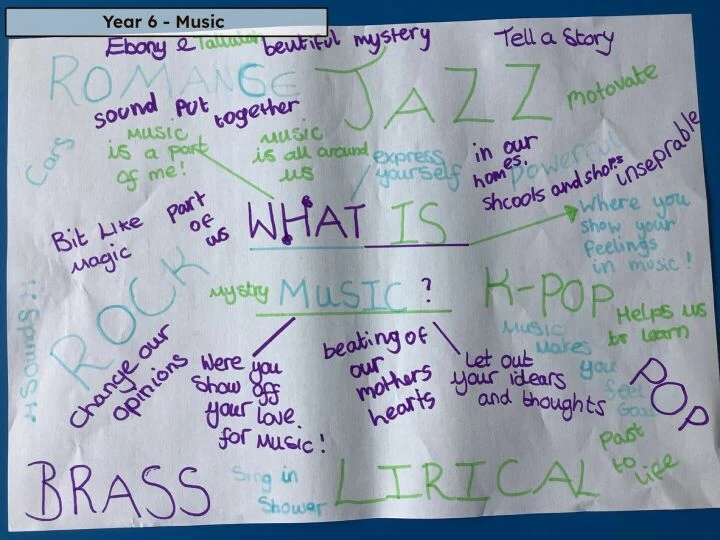 Year 6 - Music
Ebony & Tallulah
beutiful mystery
Tell a Story
ROMANCE
JAZZ
motovate
sound put together
Cars
music
is a part
of me!
music
is all around
us
express
yourself
in our
homes,
shcools and shops
Powerful
inseprable
Bit Like
magic
part
of
us
WHAT IS
MUSIC?
Where you
show your
feelings
in music!
ROCK
mystry
K-POP
Helps us
to learn
Music
makes
you
feel
Good
POP
Change our
opinions
Were you
show off
your love
for music!
beating of
our
mothers
hearts
Let out
your idears
and thoughts
part
to
life
BRASS
Sing in
Shower
LIRICAL